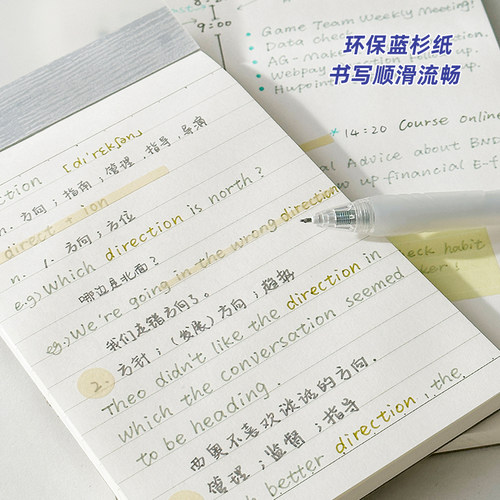 环保蓝杉纸
书写顺滑流畅
9:00
Game Team Weekly Meeting!
Data check
AG-Mak
Webpay
Hupoint
14:20 Course online
al Advice about BND
up financial E-f
eck habit
ction [di'rɛkʃən]
n. 方向；指南；管理，指导，导演
direct + ion
n. 1. 方向；方位
e.g) Which direction is north?
哪边是北面？
eg:) We're going in the wrong direction
我们走错方向了。
2. 方针；(发展)方向；趋势
Theo didn't like the direction in
which the conversation seemed
to be heading.
西奥不喜欢谈话的方向.
管理；监督；指导
better direction, the